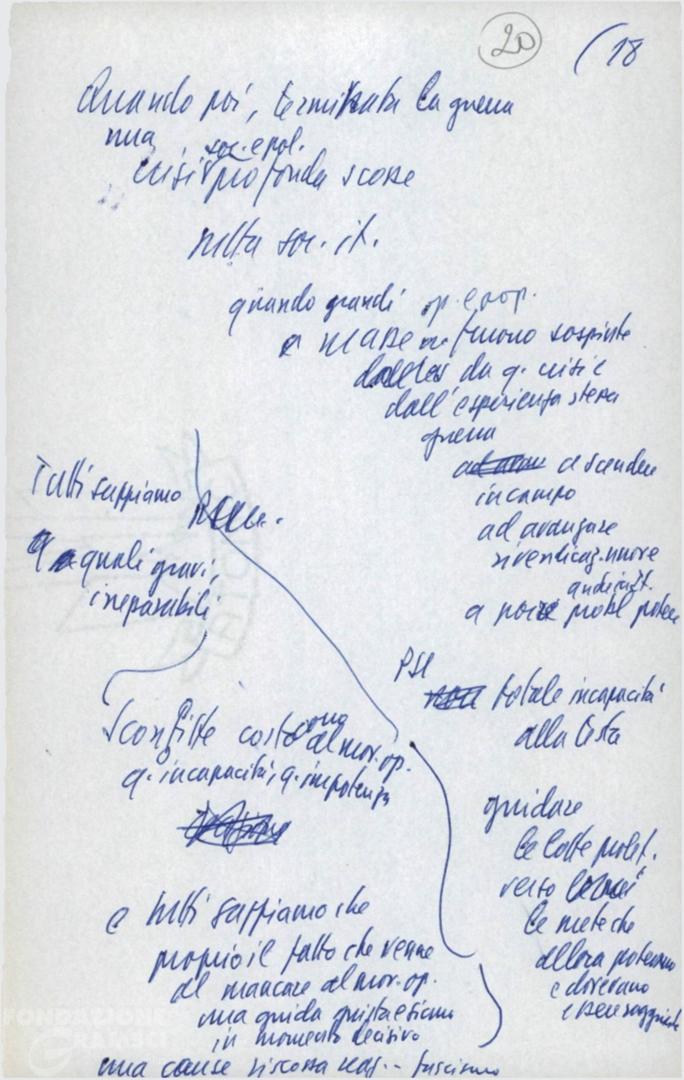 20
(18
Quando poi, terminata la guerra
una
soc. e pol.
crisi profonda scosse
nella soc. it.
quando grandi op. e pop.
masse furono sospinte
da q. crisi e
dall'esperienza stessa
guerra
a scendere
in campo
ad avanzare
rivendicaz. nuove
a porre probl potere
Tutti sappiamo
quali gravi,
irreparabili
PSI
totale incapacità
alla testa
sconfitte costarono
al mov. op.
q. incapacità, q. impotenza
guidare
le lotte prolet.
verso
le mete che
allora potevano
e dovevano
essere raggiunte
e tutti sappiamo che
proprio il fatto che venne
a mancare al mov. op.
una guida giusta e sicura
in momento decisivo
una cause riscossa reaz. -- fascismo
FONDAZIONE
GRAMSCI